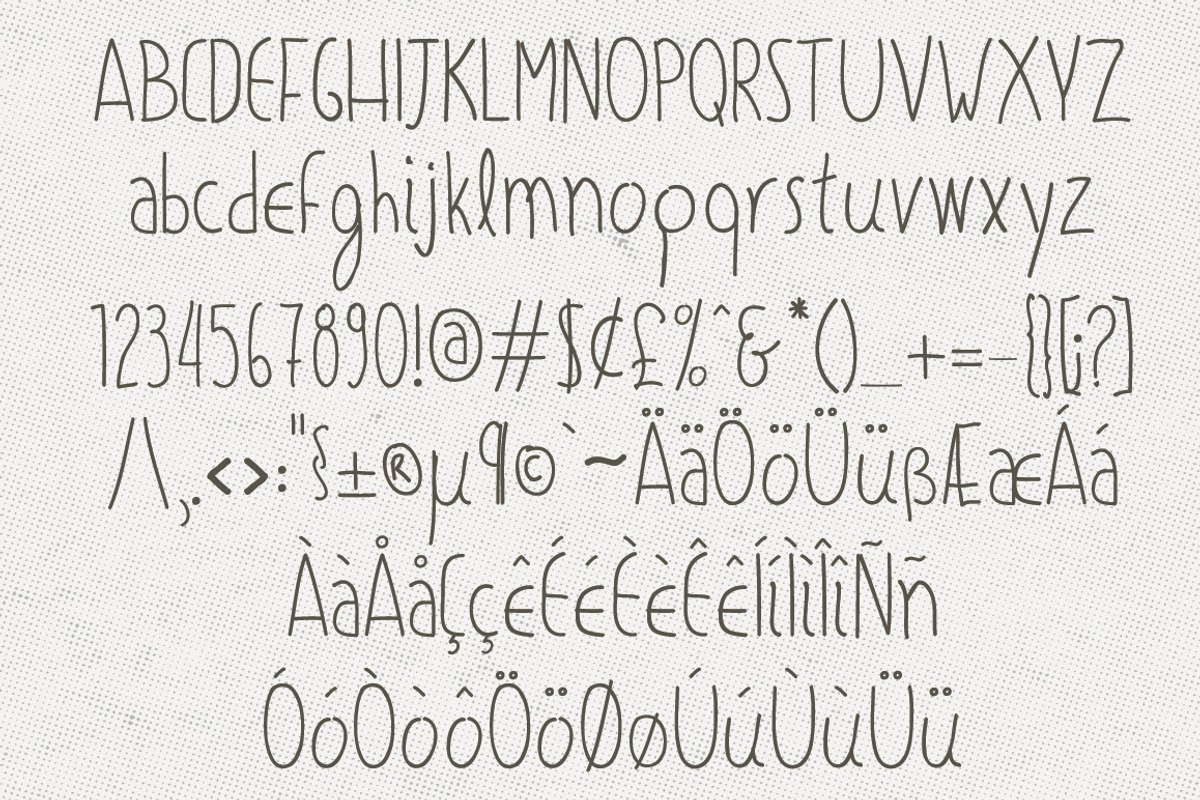 ABCDEFGHIJKLMNOPQRSTUVWXYZ
abcdefghijklmnopqrstuvwxyz
1234567890!@#$¢£%^&*()_+=-{}[¡?]
/\,.<>:"§±®µ¶©`~ÄäÖöÜüßÆæÁá
ÀàÅåÇçêÉéÈèÊêÍíÌìÎîÑñ
ÓóÒòôÖöØøÚúÙùÜü